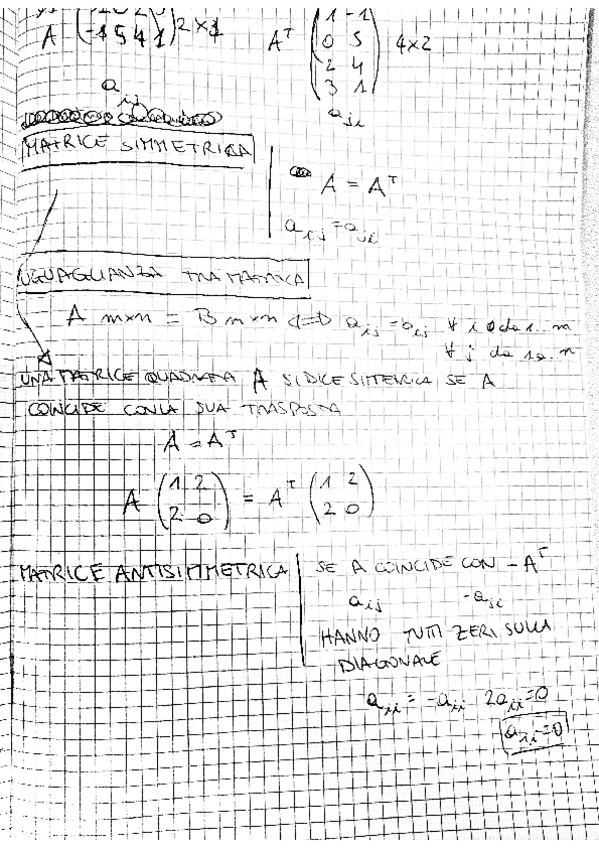 A (-1 5 4 1) 2×4 Aᵀ (1 -1
0 5
2 4
3 1) 4×2
a_ij a_ji
MATRICE SIMMETRICA
A = Aᵀ
a_ij = a_ji
UGUAGLIANZA TRA MATRICI
A m×n = B m×n <=> a_ij = b_ij ∀ i da 1...m
∀ j da 1a..n
UNA MATRICE QUADRATA A SI DICE SIMMETRICA SE A
COINCIDE CON LA SUA TRASPOSTA
A = Aᵀ
A (1 2
2 0) = Aᵀ (1 2
2 0)
MATRICE ANTISIMMETRICA SE A COINCIDE CON -Aᵀ
a_ij -a_ji
HANNO TUTTI ZERI SULLA
DIAGONALE
a_ii = -a_ii 2a_ii=0
a_ii=0